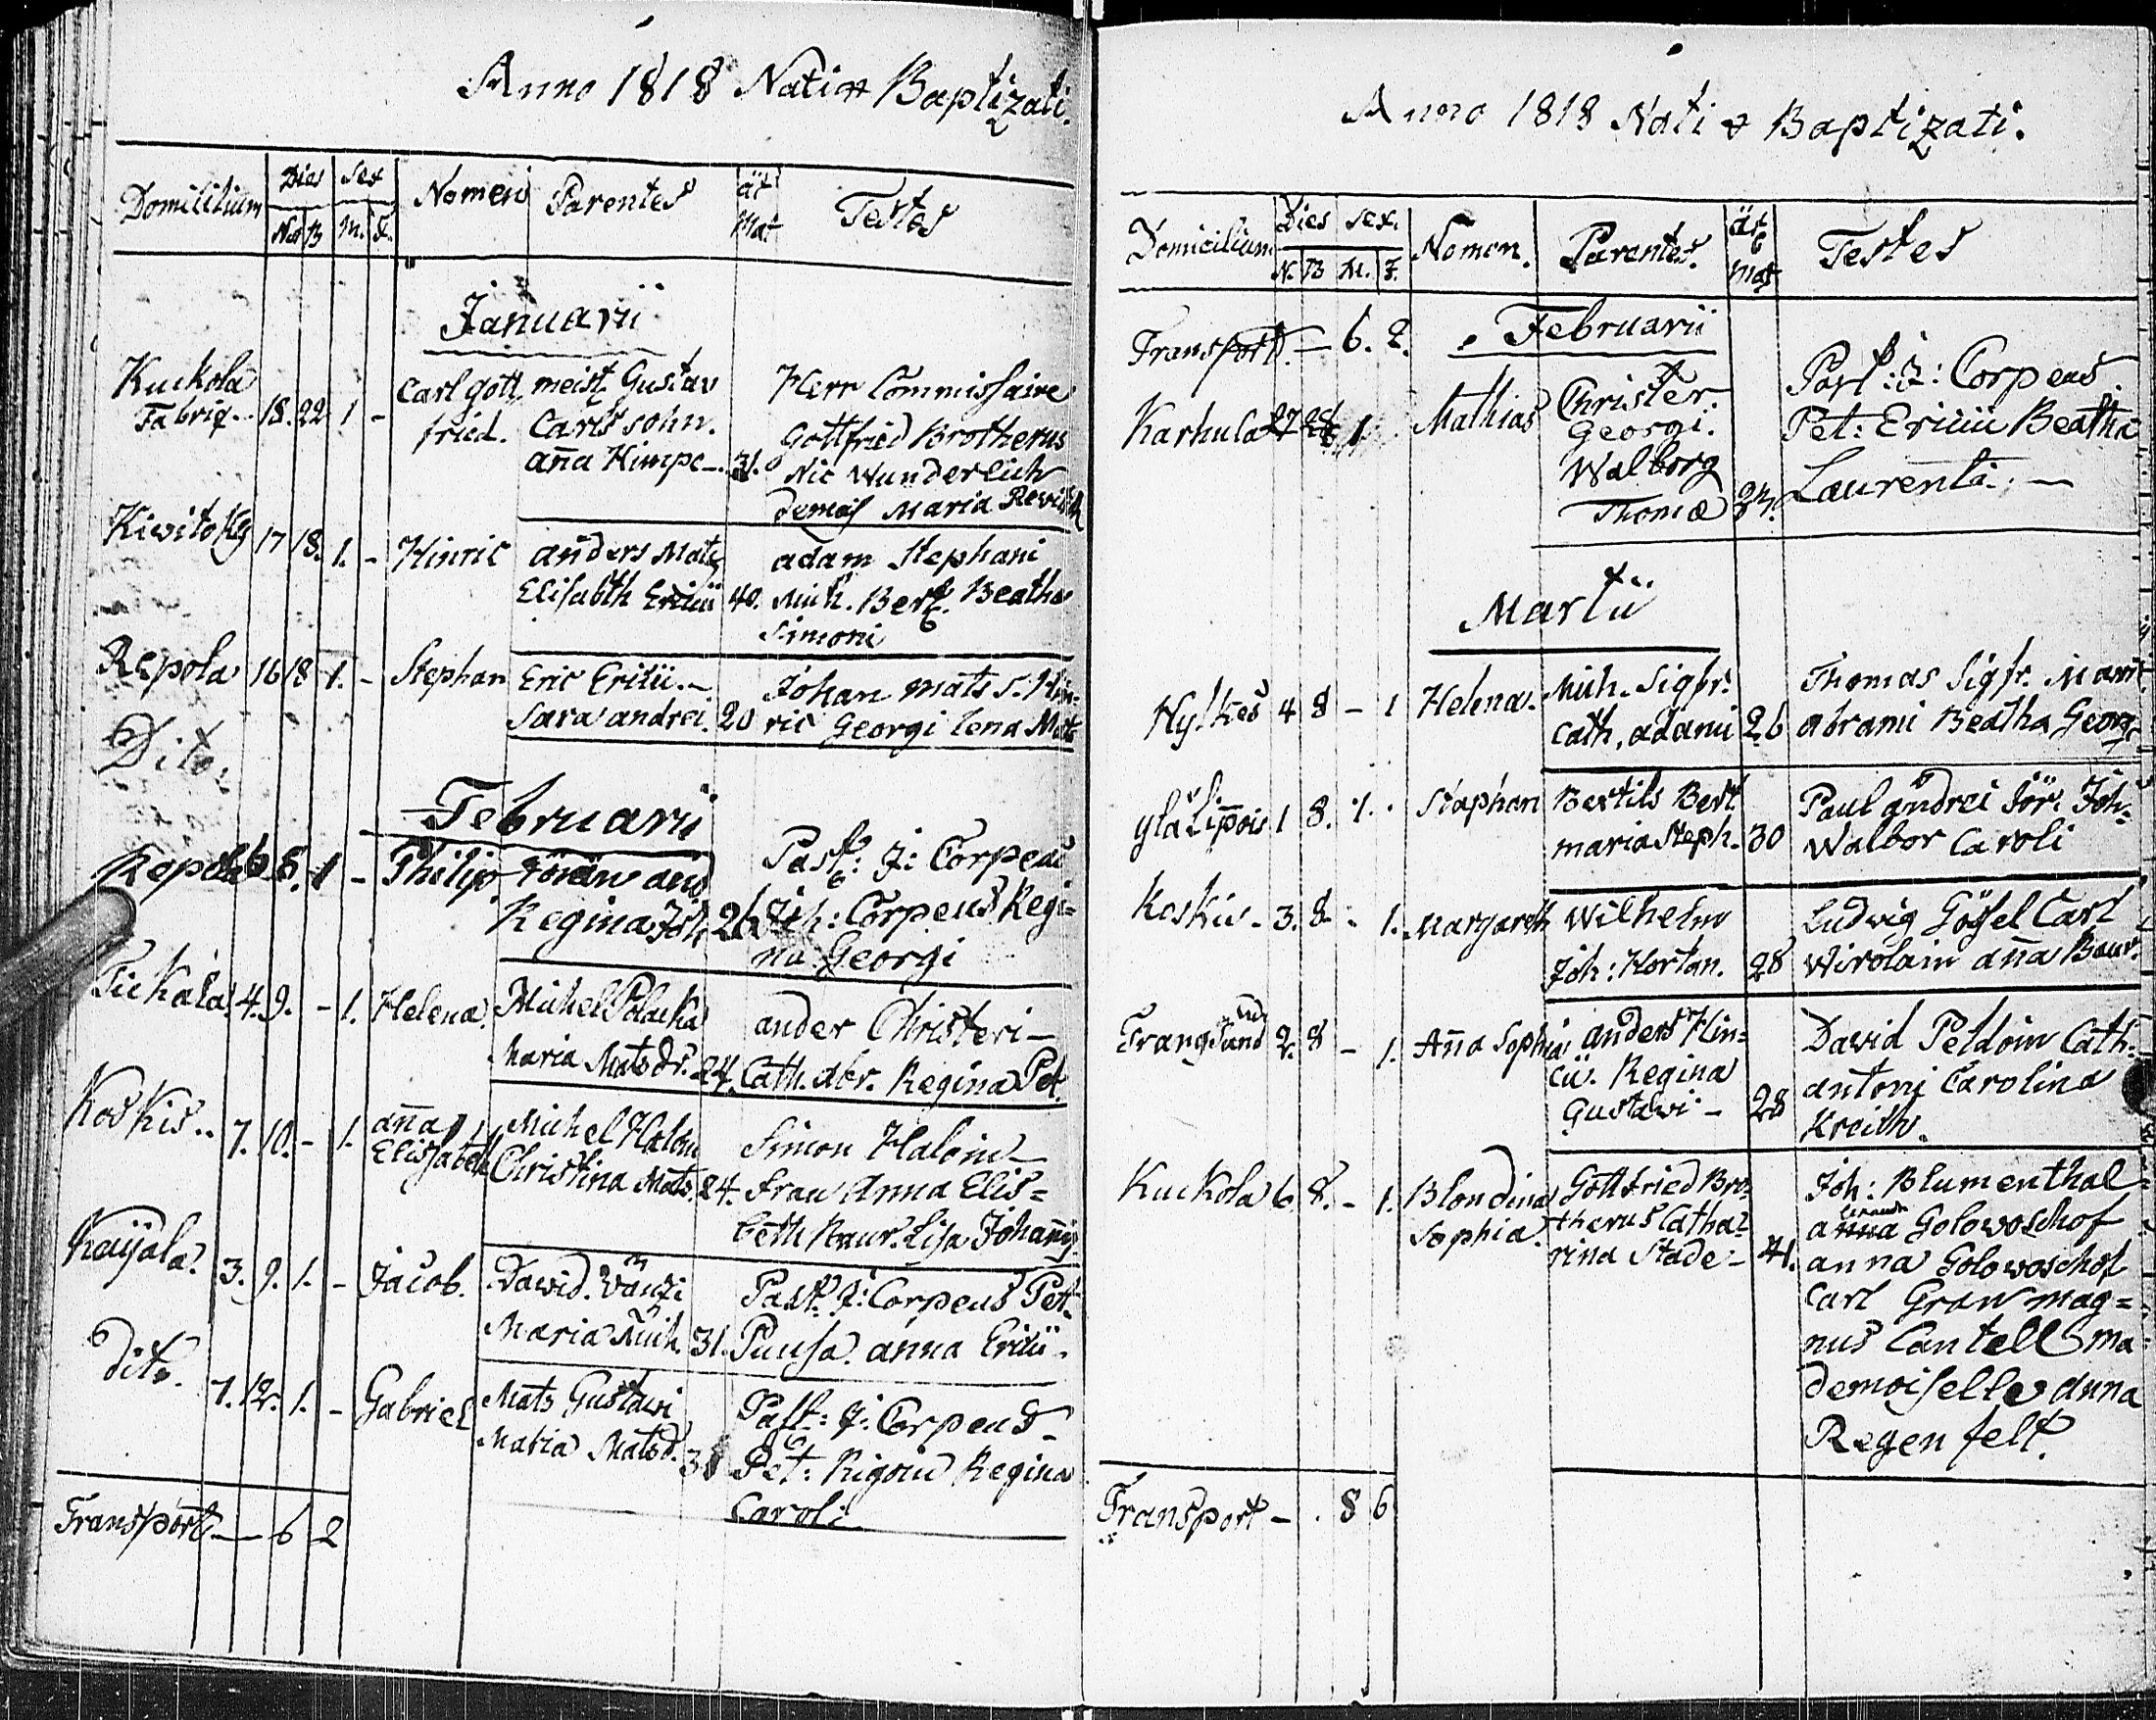 Anno 1818 Nati & Baptizati.
Domicilium Dies Sex Nomen Parentes ät Mat Testes
Nat B M. F.
Januarii
Kuckola Fabriq.. 18. 22 1 - Carl Gott meist. Gustav Herr Commissaire
fried. Carls sohn. Gottfried Brotherus
aña Himpe-. 31. Nic Wunderlich
Demois Maria
Kiwitoky 17 18. 1. - Hinric anders Mats adam Stephani
Elisabth Ericii 40. Mich. Bert. Beatha
Simoni
Repola 16 18 1. - Stephan Eric Ericii.- Johan Mats s. Hin-
Sara andrei. 20 ric Georgi Lena Mats
Dito.
Februarii
Repola 6 8. 1 - Philip Jöran and Past: J: Corpeus
Regina Joh 26 Joh: Corpeus Regi=
na Georgi
4. 9. - 1. Helena. Michel Polacka ander Christeri-
Maria Mats Dr. 24. Cath. Abr. Regina Pet.
Koskis.. 7. 10. - 1. aña Michel Haloin Simon Haloin
Elisabeth Christina Mats. 24. frau Anna Elis=
beth Baur. Lisa Johañis
Kaijala. 3. 9. 1. - Jacob. David. Past: J: Corpeus Pet.
Maria Mich. 31. Puusa. anna Ericii.
Dito. 7. 12. 1. - Gabriel Mats Gustavi Past: J: Corpeus
Maria Matsd. 38 Pet: Rigoin Regina
Caroli
Transport - 6 2
Anno 1818 Nati & Baptizati.
Domicilium Dies Sex. Nomen. Parentes. ät. mat Testes
N. B M. F.
Transport. - 6. 2. Februarii
Karhula 27 28 1. Mathias Christer Past: J: Corpeus
Georgi. Pet: Ericii Beatha
Walborg Laurentii. -
Thomæ 27.
Martii
Hylkes 4 8 - 1 Helena. Mich. Sigfr. Thomas Sigfr. Marit
Cath. adami 26 abrami Beatha Georg
Yla Lipois 1 8. 1. . Staphan Bertils Bert Paul andrei Jör. Joh-
maria Steph. 30 Walbor Caroli
Koskis - 3. 8. - 1. Margareth Wilhelm Ludvig Gössel Carl
Joh: Hortan. 28 Wirolain aña Baur.
Trangsund 2. 8 - 1. Aña Sophia anders Hin= David Peldoin Cath.
cii. Regina antoni Carolina
Gustavi - 28 Kreith.
Kuckola 6 8. - 1. Blondina Gottfried Bro- Joh: Blumenthal
Sophia. therus Catha= anna Golowoschof
rina Stade - 41. anna Golowoschof
Carl Gran mag=
nus Cantell ma
demoiselle Anna
Regenfelt.
Transport - . 8 6